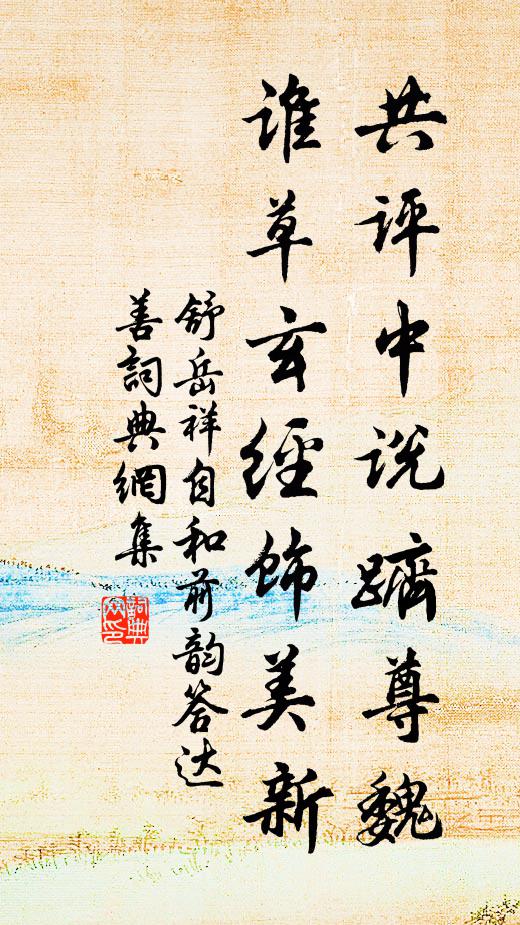 共评中说躋尊魏
谁草玄經飾美新
舒岳祥自和前韵答达
善詞典網集
詞典